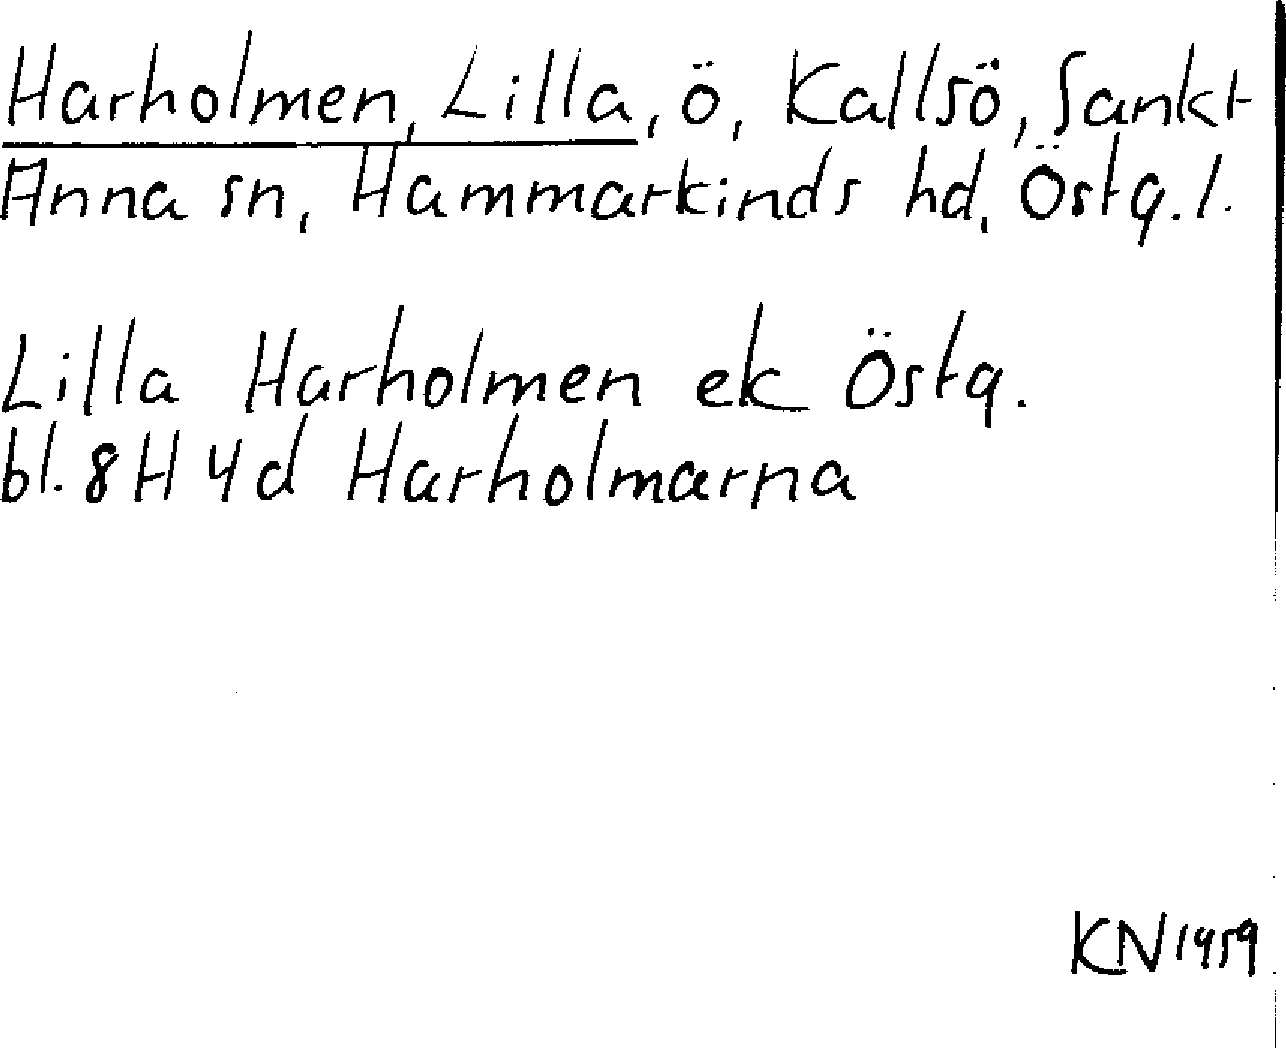 Harholmen, Lilla, ö, Kallsö, Sankt
Anna sn, Hammarkinds hd, Östg. l.
Lilla Harholmen ek Östg.
bl. 8H 4d Harholmarna
KN 1959